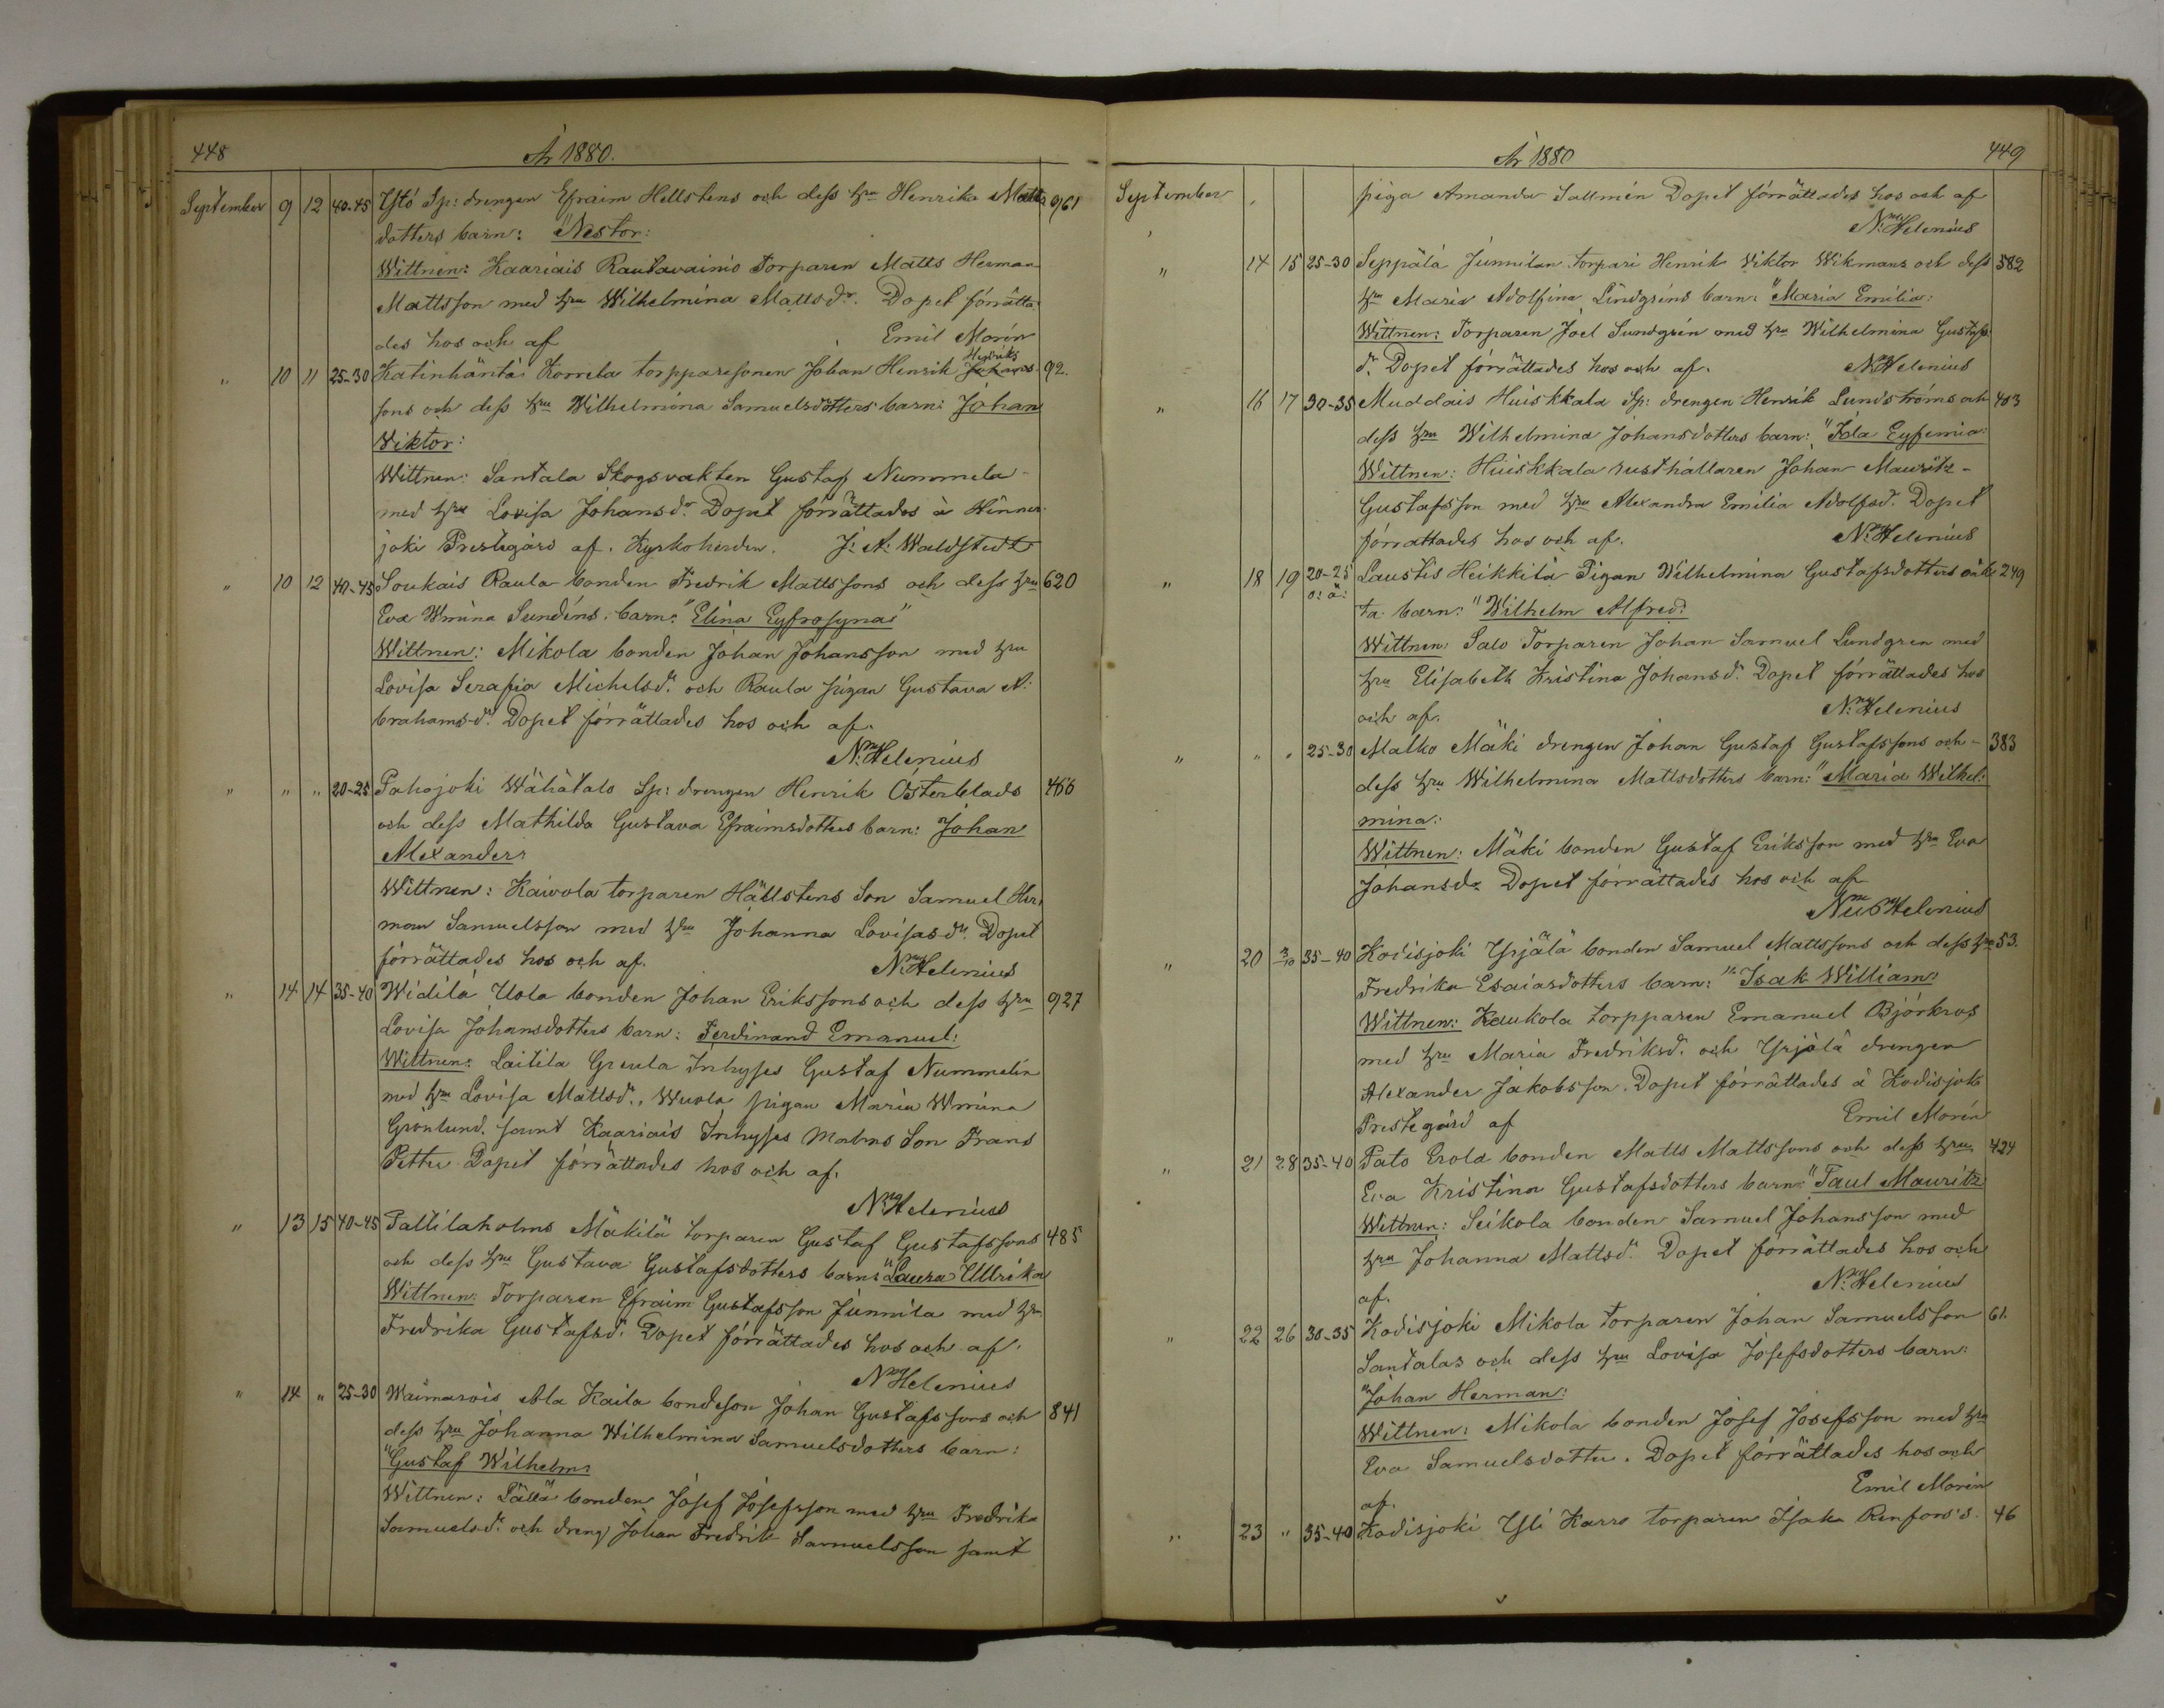 448
År 1880.
September 9 12 40-45 Ystö Sp: drengen Efraim Hellstens och dess hru Henrika Matts 961
dotters barn: "Nestor:
Wittnen: Kaariais Rautavainio Torparen Matts Herman
Mattsson med hru Wilhelmina Mattsdr. Dopet förrätta
des hos och af Emil Morén
" 10 11 25-30 Katinhäntä Korrela torpparesonen Johan Henrik Henriks 92.
sons och dess hru Wilhelmina Samuelsdotters barn: Johan
Wiktor:
Wittnen: Santala Skogsvakten Gustaf Nummela
med hru Lovisa Johansdr. Dopet förrättades å Hinner
joki Prestegård af. Kyrkoherden. J: A: Waldstedt
" 10 12 40-45 Soukais Raula bonden Fredrik Mattssons och dess hru 620
Eva Wmina Sundéns barn: "Elina Eyfrosyna"
Wittnen: Mikola bonden Johan Johansson med hru
Lovisa Serafia Michelsdr. och Raula pigan Gustava A:
brahamsdr. Dopet förrättades hos och af.
N: Helenius
" " " 20-25 Pahojoki Wähätalo Sp: drengen Henrik Österblads 466
och dess Mathilda Gustava Efraimsdotters barn: Johan
Alexander:
Wittnen: Kaivola torparen Hällstens Son Samuel Her
man Samuelsson med hru Johanna Lovisasdr. Dopet
förrättades hos och af. N: Helenius
" 14 14 35-40 Widilä Uola bonden Johan Erikssons och dess hru 927
Lovisa Johansdotters barn: Ferdinand Emanuel:
Wittnen: Laitila Greula Inhyses Gustaf Nummelin
med hru Lovisa Mattsdr., Wuola pigan Maria Wmina
Grönlund. samt Kaariais Inhyses Malms Son Frans
Petter. Dopet förrättades hos och af.
N: Helenius
" 13 15 40-45 Pallilaholms Mäkilä torparen Gustaf Gustafssons 485
och dess hru Gustava Gustafsdotters barn: "Laura Ullrika
Wittnen: Torparen Efraim Gustafsson Junnila med hru
Fredrika Gustafsdr. Dopet förrättades hos och af.
N: Helenius
" 14 " 25-30 Waimarois Ala Kaila bondeson Johan Gustafssons och 841
dess hru Johanna Wilhelmina Samuelsdotters barn:
"Gustaf Wilhelm:
Wittnen: Pällä bonden Josef Josefsson med hru Fredrika
Samuelsdr. och dreng Johan Fredrik Samuelsson samt
År 1880
449
September piga Amanda Sallmén Dopet förrättades hos och af
N: Helenius
" 14 15 25-30 Seppälä Junnilan torpari Henrik Viktor Wikmans och dess 582
hru Maria Adolfina Lindgréns barn: "Maria Emilia:
Wittnen: Torparen Joel Sundgrén med hru Wilhelmina Gustafs
dr. Dopet förrättades hos och af. N: Helenius
" 16 17 30-35 Muddais Huiskkala Sp: drengen Henrik Lundströms och 403
dess hru Wilhelmina Johansdotters barn: "Ida Eyfemia:
Wittnen: Huiskkala rusthållaren Johan Mauritz
Gustafsson med hru Alexandra Emilia Adolfsd. Dopet
förrättades hos och af. N: Helenius
" 18 19 20-25 Laustis Heikkilä Pigan Wilhelmina Gustafsdotters oäk 249
o: ä: ta barn: "Wilhelm Alfred:
Wittnen: Salo Torparen Johan Samuel Lundgren med
hru Elisabeth Kristina Johansdr. Dopet förrättades hos
och af. N: Helenius
" " " 25-30 Malko Mäki drengen Johan Gustaf Gustafssons och 383
dess hru Wilhelmina Mattsdotters barn: "Maria Wilhel:
mina:
Wittnen: Mäki bonden Gustaf Eriksson med hru Eva
Johansdr. Dopet förrättades hos och af
Helenius
" 20 3/10 35-40 Kodisjoki Yrjälä bonden Samuel Mattssons och dess hru 53.
Fredrika Esaiasdotters barn: "Isak William:
Wittnen: Kaukola torpparen Emanuel Björkros
med hru Maria Fredriksd. och Yrjälä drengen
Alexander Jakobsson. Dopet förrättades å Kodisjoki
Prestegård af Emil Morén
" 21 28 35-40 Pato Erola bonden Matts Mattssons och dess hru 424
Eva Kristina Gustafsdotters barn: "Paul Mauritz
Wittnen: Seikola bonden Samuel Johansson med
hru Johanna Mattsdr. Dopet förrättades hos och
af. N: Helenius
" 22 26 30-35 Kodisjoki Mikola torparen Johan Samuelsson 61.
Santalas och dess hru Lovisa Josefsdotters barn:
"Johan Herman:
Wittnen: Mikola bonden Josef Josefsson med hru
Eva Samuelsdotter. Dopet förrättades hos och
af. Emil Morén
" 23 " 35-40 Kodisjoki Yli Karro torparen Isaka Renfors's. 46